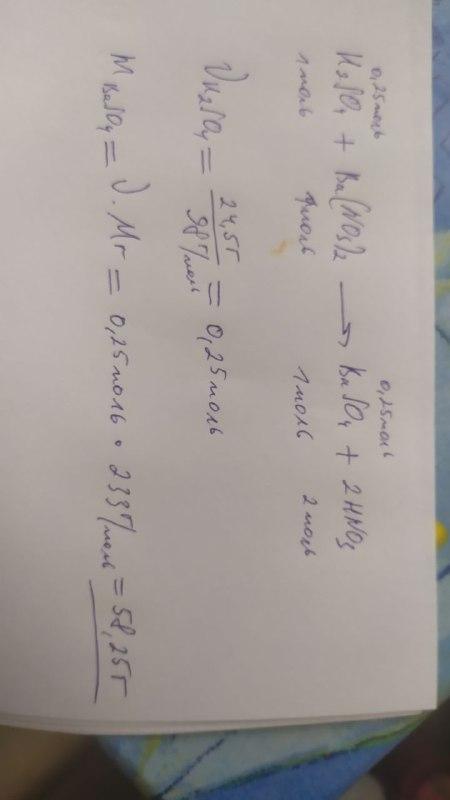 0,25моль 0,25моль
H2SO4 + Ba(NO3)2 → BaSO4 + 2HNO3
1моль 1моль 1моль 2моль
νH2SO4 = 24,5г / 98г/моль = 0,25моль
mBaSO4 = ν · Mr = 0,25моль · 233г/моль = 58,25г